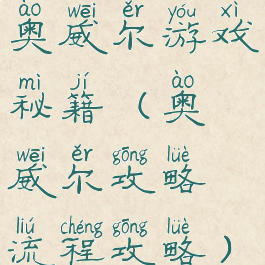 ào wēi ěr yóu xì
奥威尔游戏
mì jí ào
秘籍（奥
wēi ěr gōng lüè
威尔攻略
liú chéng gōng lüè
流程攻略）